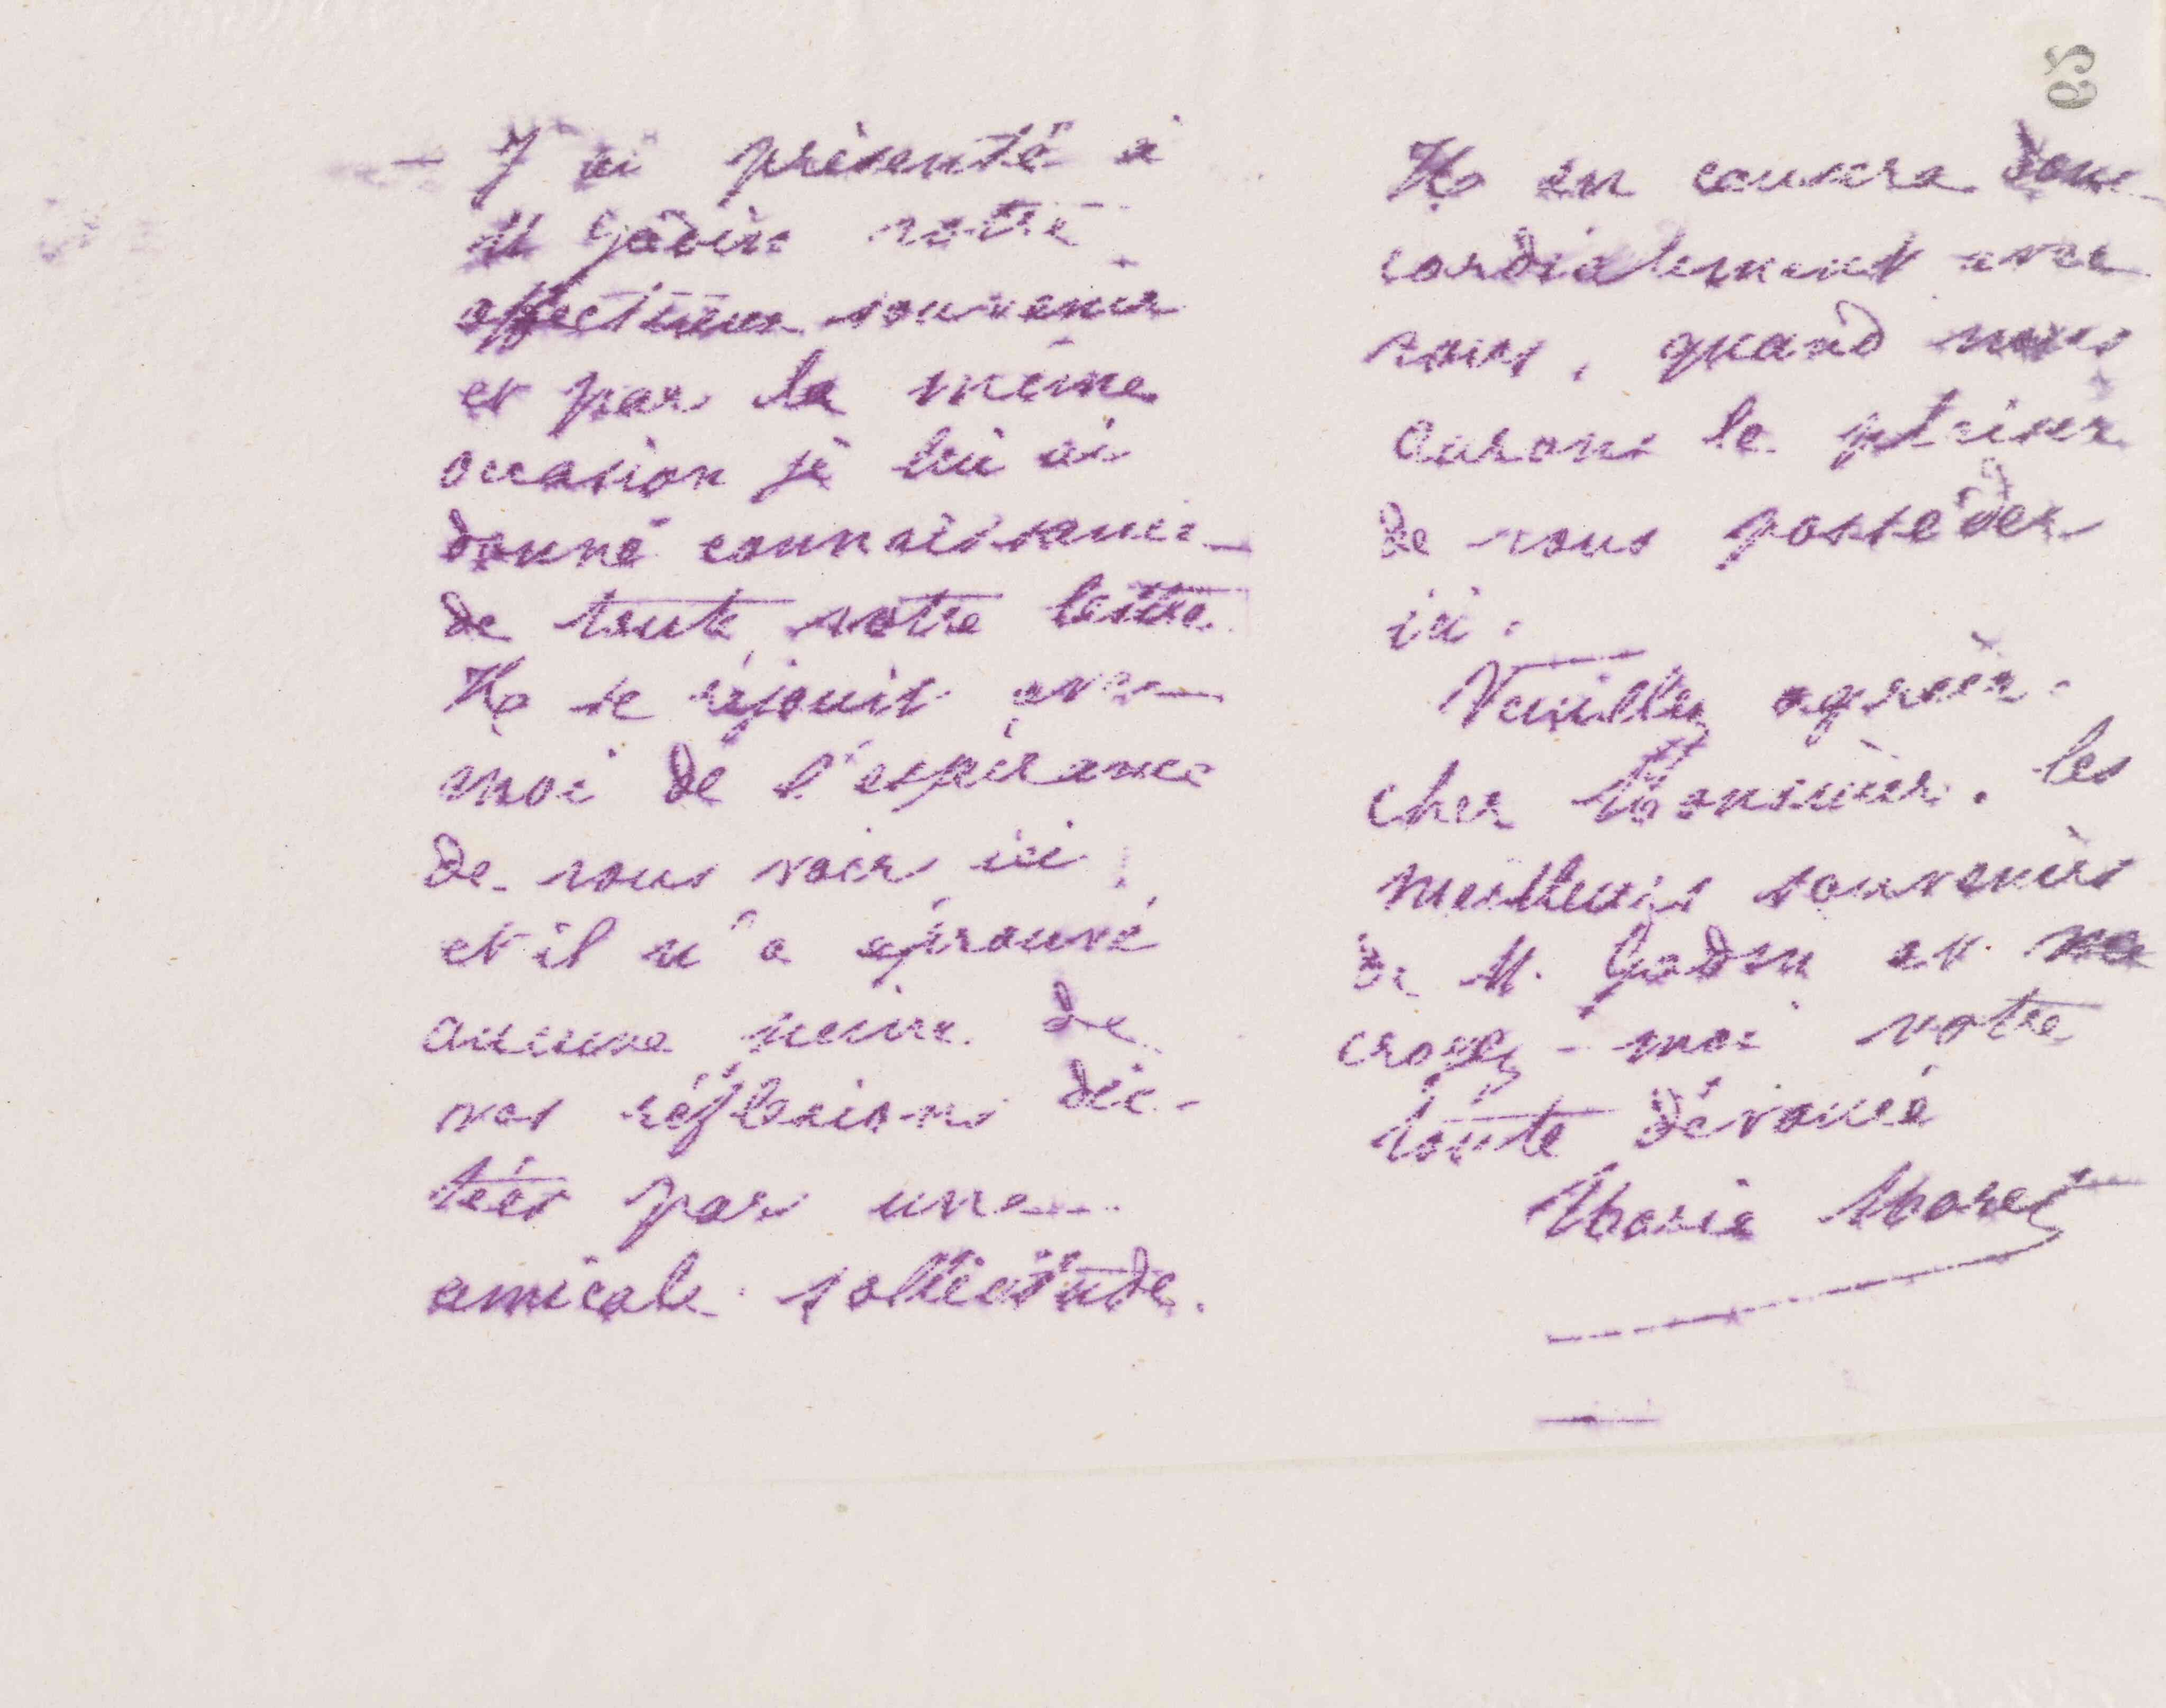 — J'ai présenté à
M Godin votre
affectueux souvenir
et par la même
occasion je lui ai
donné connaissance
de toute votre lettre.
Il se réjouit avec
moi de l'espérance
de vous voir ici,
et il n'a éprouvé
aucune peine de
vos réflexions dic-
tées par une
amicale sollicitude.
Il en causera donc
cordialement avec
vous, quand nous
aurons le plaisir
de vous posséder
ici.
Veuillez agréer,
cher Monsieur, les
meilleurs souvenirs
de M. Godin et me
croyez-moi votre
toute dévouée
Marie Moret